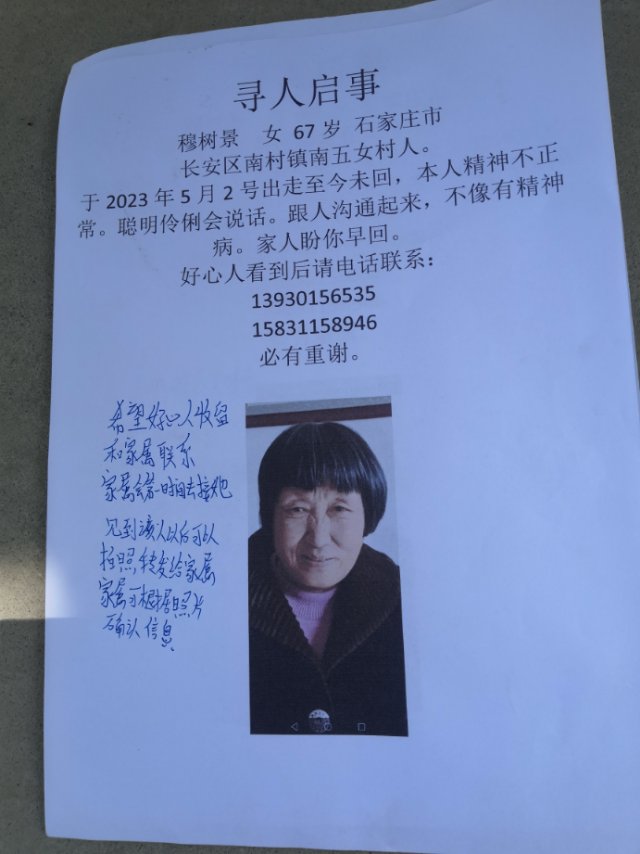 寻人启事
穆树景 女 67岁 石家庄市
长安区南村镇南五女村人。
于2023年5月2号出走至今未回，本人精神不正
常。聪明伶俐会说话。跟人沟通起来，不像有精神
病。家人盼你早回。
好心人看到后请电话联系：
13930156535
15831158946
必有重谢。
希望好心人收留
和家属联系
家属会第一时间去接她
见到该人以后可以
拍照转发给家属
家属可根据照片
确认信息